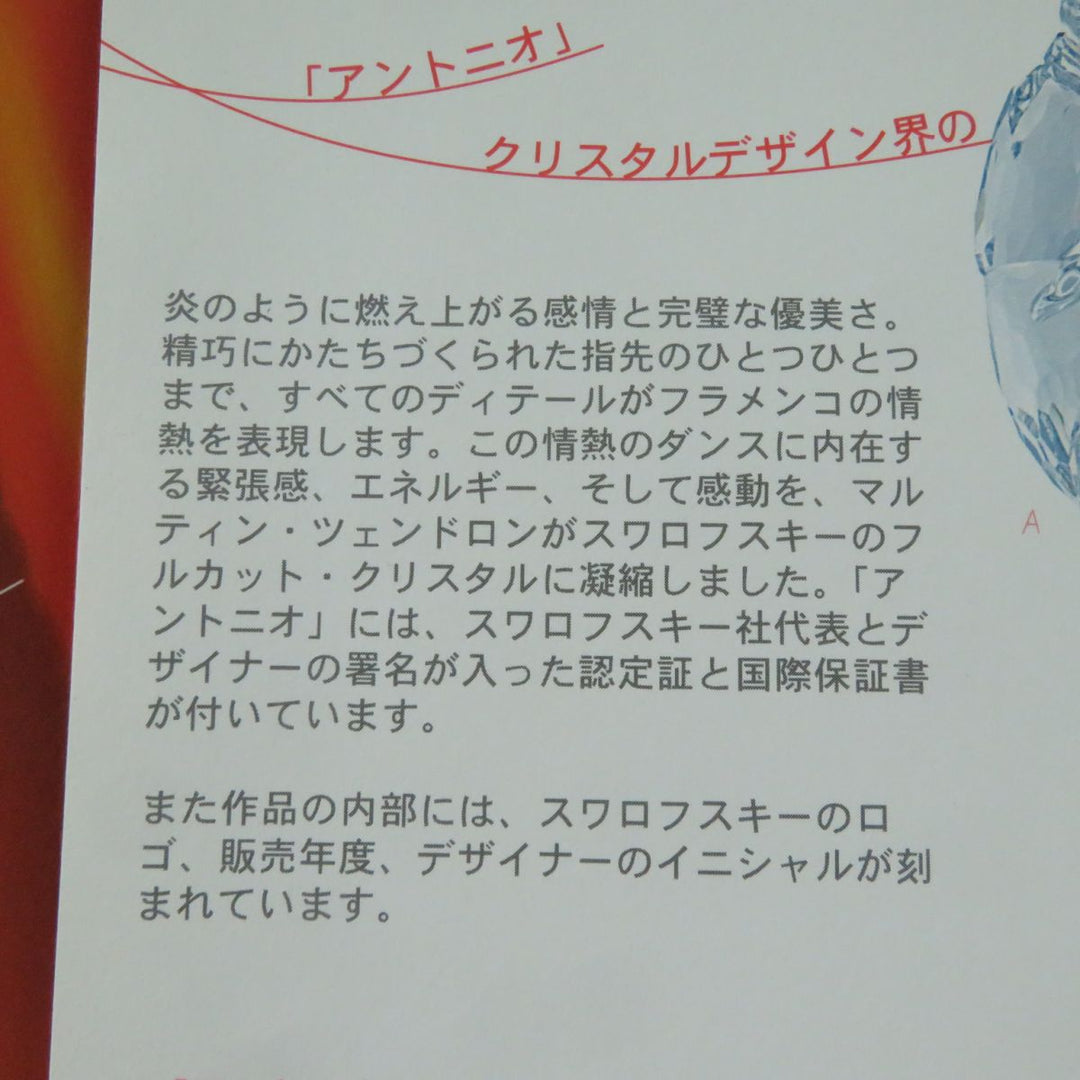 「アントニオ」
クリスタルデザイン界の
炎のように燃え上がる感情と完璧な優美さ。
精巧にかたちづくられた指先のひとつひとつ
まで、すべてのディテールがフラメンコの情
熱を表現します。この情熱のダンスに内在す
る緊張感、エネルギー、そして感動を、マル
ティン・ツェンドロンがスワロフスキーのフ
ルカット・クリスタルに凝縮しました。「ア
ントニオ」には、スワロフスキー社代表とデ
ザイナーの署名が入った認定証と国際保証書
が付いています。
また作品の内部には、スワロフスキーのロ
ゴ、販売年度、デザイナーのイニシャルが刻
まれています。
A